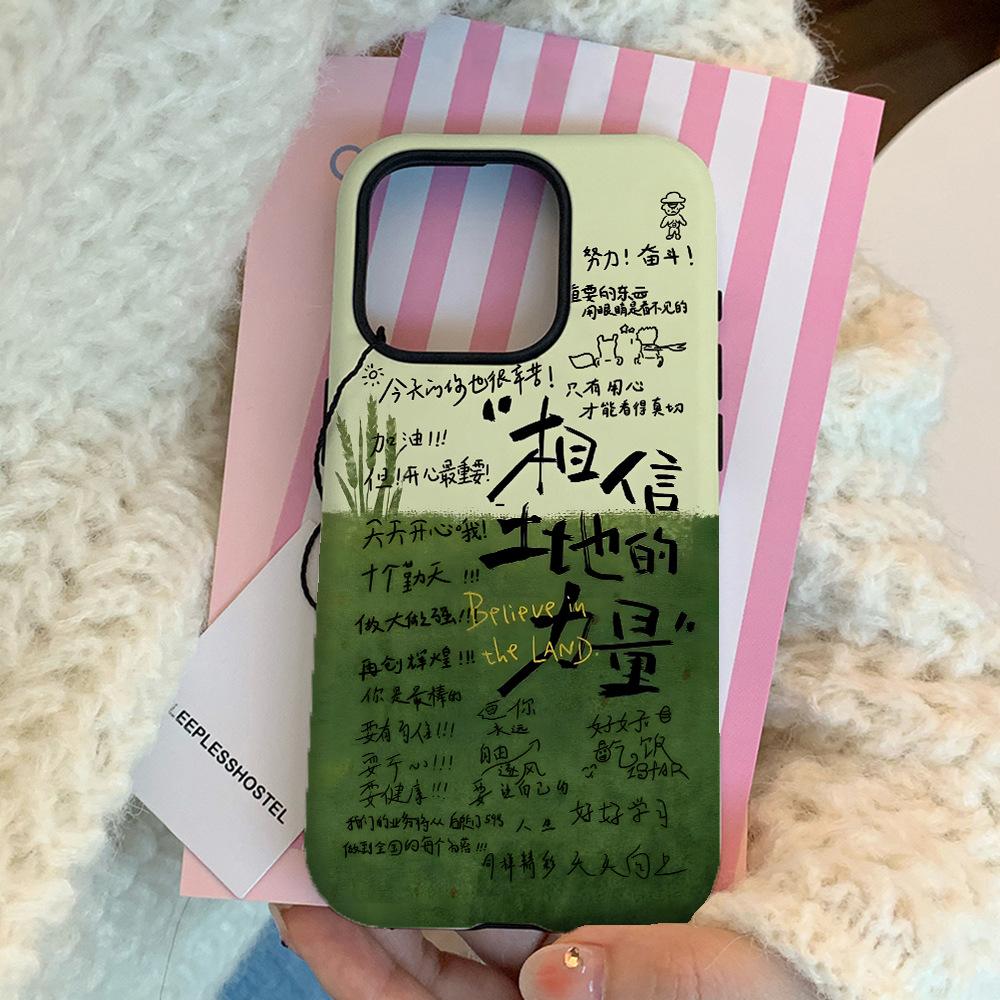 努力！奋斗！
重要的东西
用眼睛是看不见的
只有用心
才能看得真切
今天的你也很辛苦！
加油!!!
但！开心最重要！
天天开心哦！
十个勤天 !!!
做大做强!!!
再创辉煌!!!
你是最棒的
要有自信!!!
要开心!!!
要健康!!!
我们的业务将从后陡门58号
做到全国的每个角落!!!
“相信
土地的
力量”
Believe in
the LAND.
你
永远
自由
逐风
要让自己的
人生
同样精彩
好好
吃饭
好好学习
天天向上
LEEPLESSHOSTEL